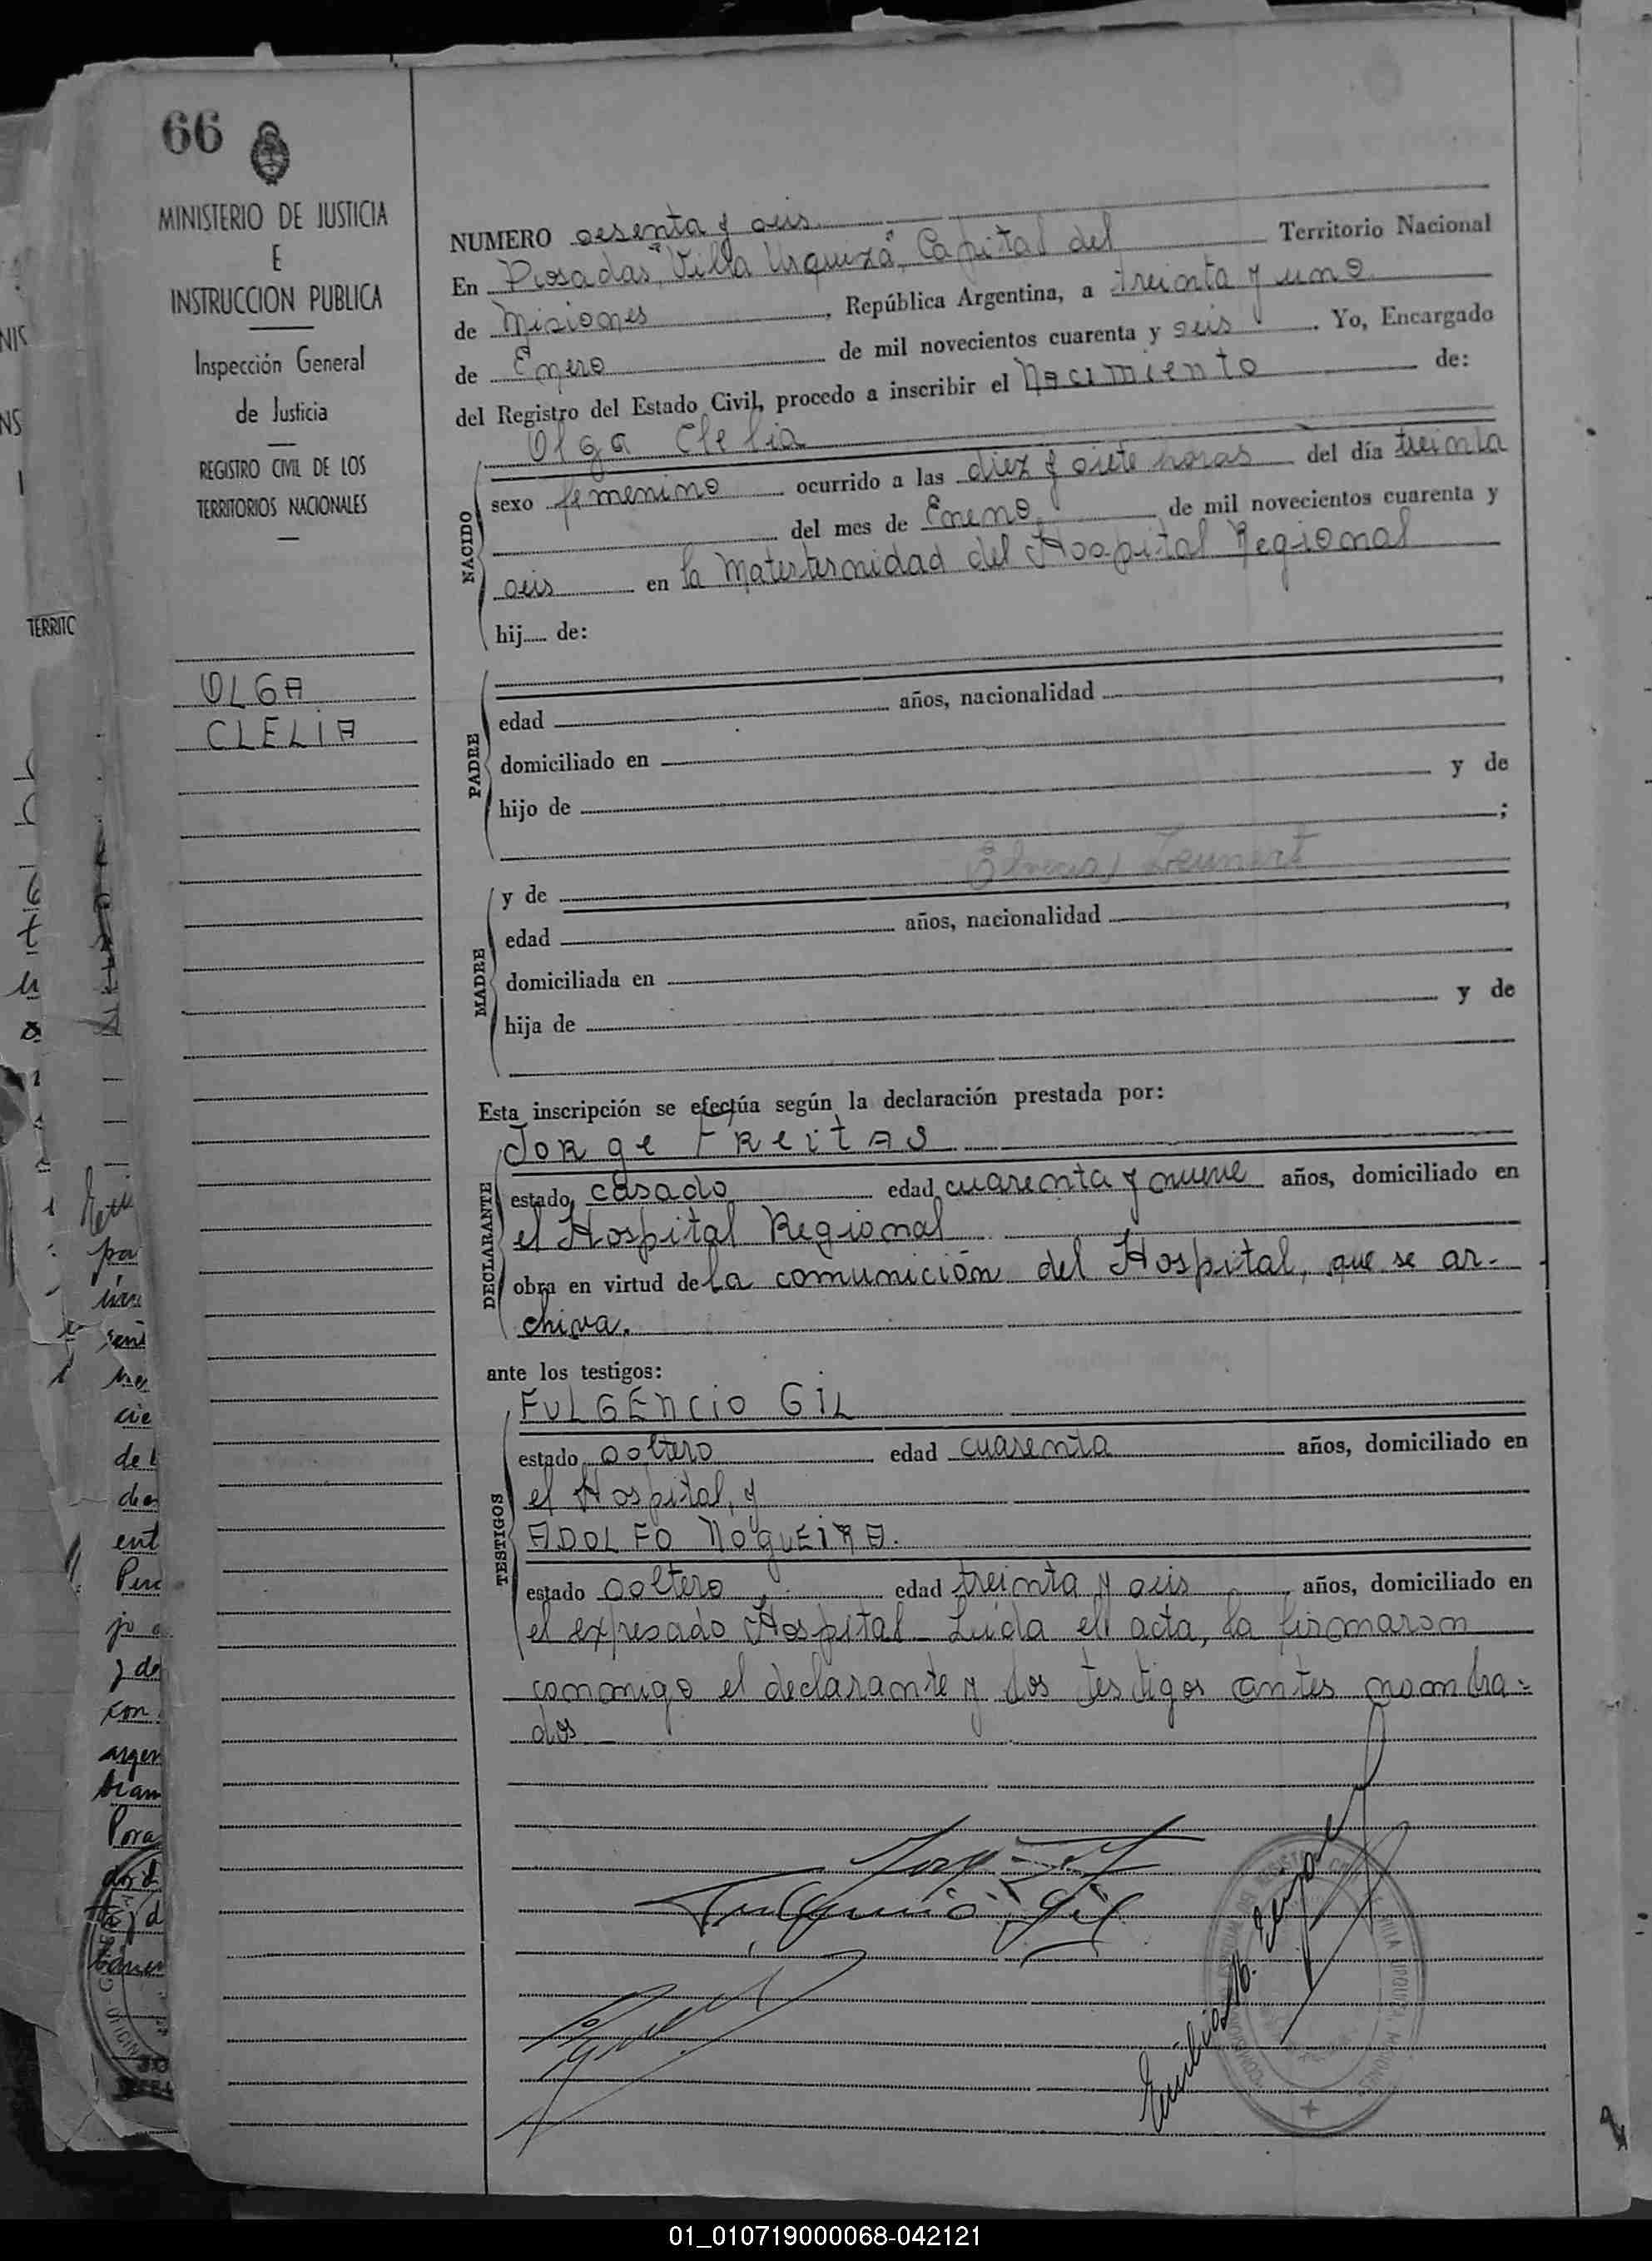 66
MINISTERIO DE JUSTICIA
E
INSTRUCCION PUBLICA
Inspección General
de Justicia
REGISTRO CIVIL DE LOS
TERRITORIOS NACIONALES
OLGA
CLELIA
NUMERO sesenta y seis
En Posadas, "Villa Urquiza", Capital del Territorio Nacional
de Misiones, República Argentina, a treinta y uno
de Enero de mil novecientos cuarenta y seis. Yo, Encargado
del Registro del Estado Civil, procedo a inscribir el Nacimiento de:
Olga Clelia
NACIDO
sexo femenino ocurrido a las diez y siete horas del día treinta
del mes de Enero de mil novecientos cuarenta y
seis en la Materternidad del Hospital Regional
hij..... de:
PADRE
edad años, nacionalidad ,
domiciliado en
hijo de y de
;
MADRE
y de
edad años, nacionalidad ,
domiciliada en
hija de y de
Esta inscripción se efectúa según la declaración prestada por:
DECLARANTE
JORge FReitAS
estado casado edad cuarenta y nueve años, domiciliado en
el Hospital Regional
obra en virtud de la comunición del Hospital, que se ar-
chiva.
ante los testigos:
TESTIGOS
FULGENCIO GIL
estado soltero edad cuarenta años, domiciliado en
el Hospital, y
ADOLFO NOgUEIRA.
estado soltero edad treinta y seis años, domiciliado en
el expresado Hospital Leida el acta, la firmaron
conmigo el declarante y los testigos antes nombra-
dos
Fulgencio Gil
TERRITC
01_010719000068-042121